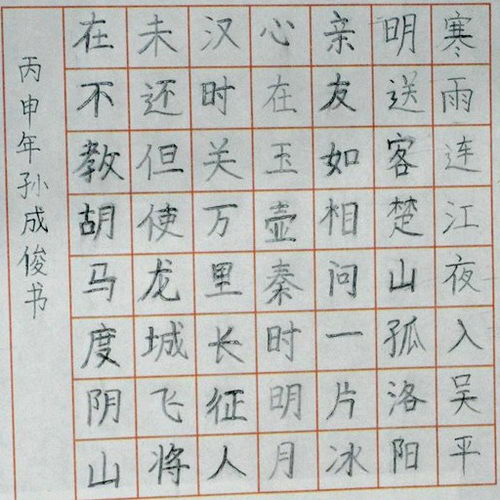 寒雨连江夜入吴平
明送客楚山孤洛阳
亲友如相问一片冰
心在玉壶秦时明月
汉时关万里长征人
未还但使龙城飞将
在不教胡马度阴山
丙申年孙成俊书